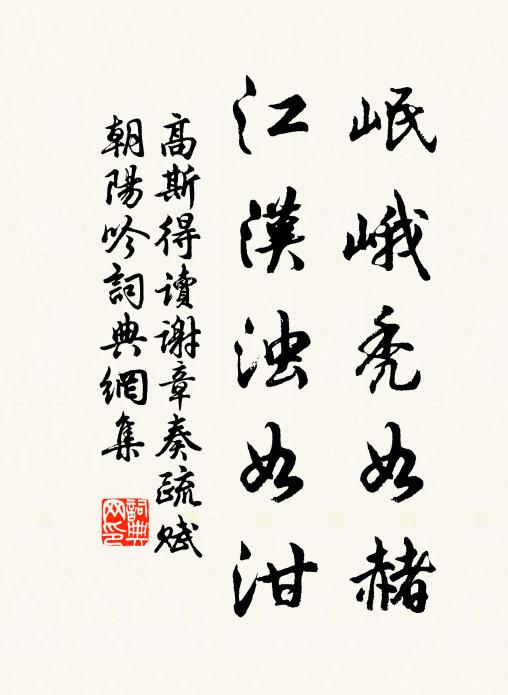 岷峨秃如赭
江漢浊如泔
高斯得读谢章奏疏赋
朝陽吟詞典網集
詞典网印